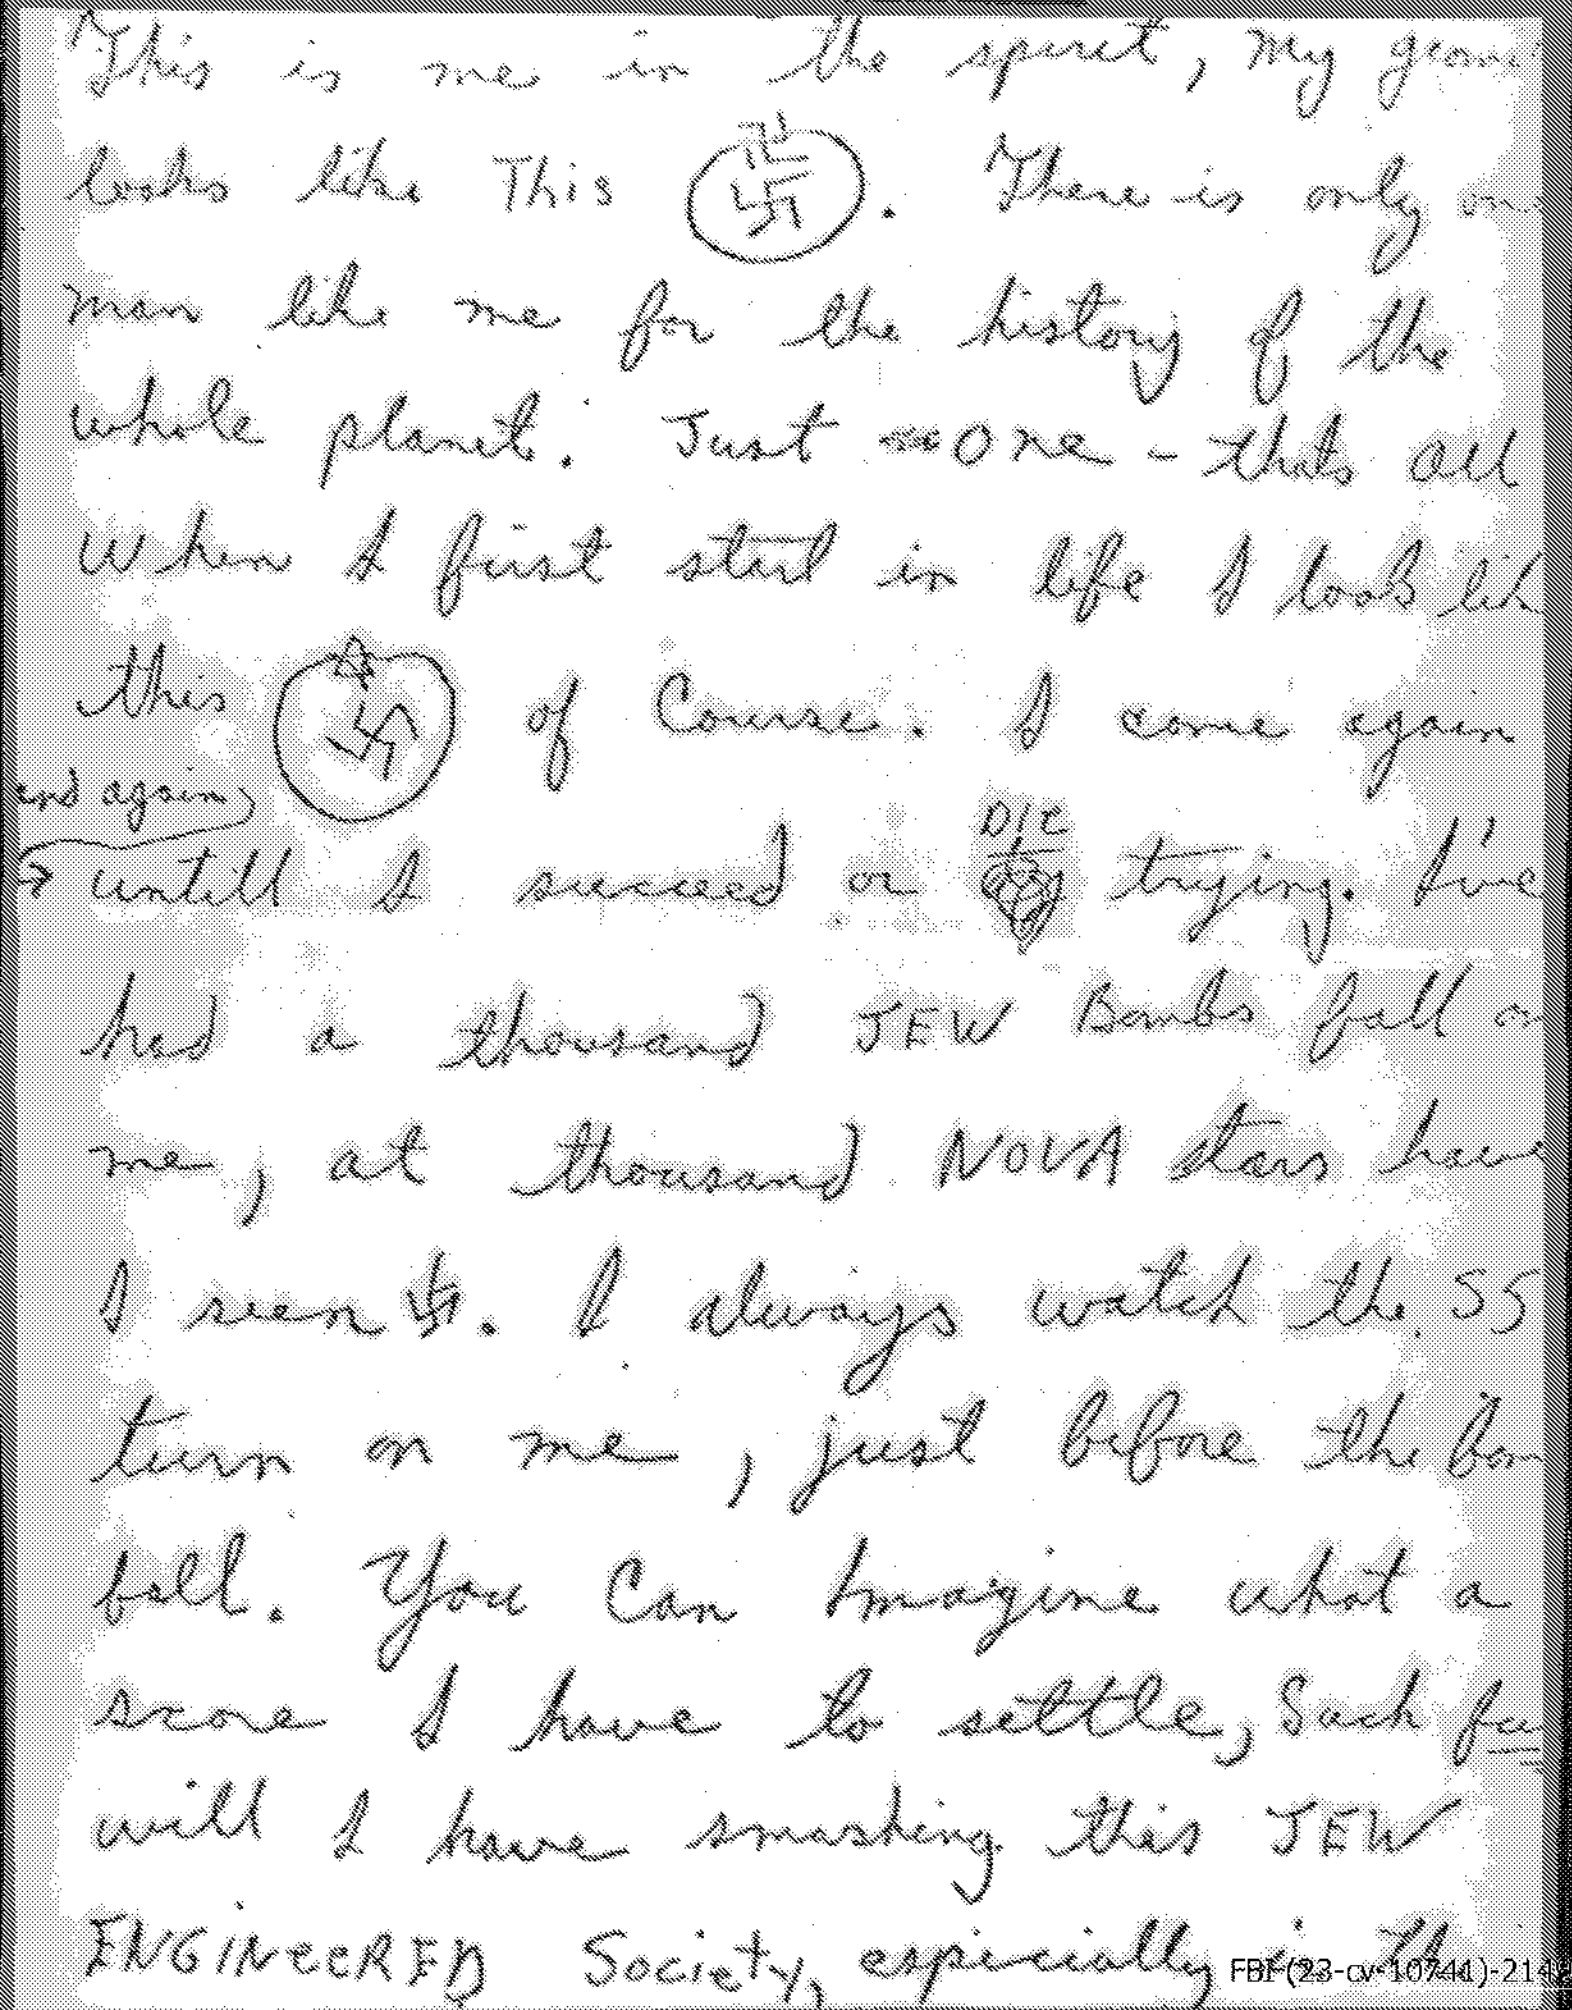 This is me in the spirit, my geom
looks like This . There is only on
man like me for the history of the
whole planet. Just One - thats all
When I first start in life I look lik
this of Course. I come again
and again
untill I succeed or DIE trying. I've
had a thousand JEW Bombs fall on
me, at thousand NOVA stars have
I seen 卐. I always watch the SS
turn on me, just before the bom
fall. You Can Imagine what a
score I have to settle, Such fu
will I have smashing this JEW
ENGINEERED Society, especially in the
FBI (23-cv-10741)-214